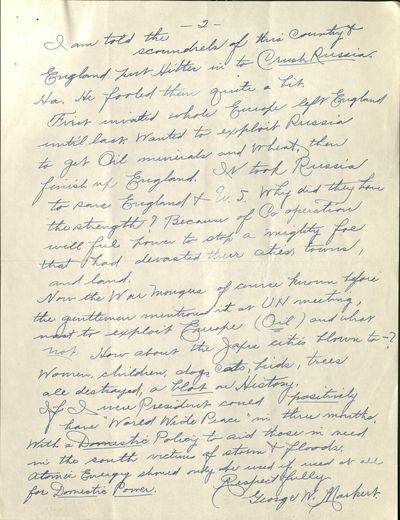 — 2 —
I am told the
scoundrels of this country &
England put Hitler in to Crush Russia.
Ha. He fooled them quite a bit.
First invated whole Europe left England
until last. Wanted to exploit Russia
to get Oil minerals and wheat, then
finish up England. It took Russia
to save England & U.S. Why did they have
the strength? Because of Co operation
will full power to stop a mighty foe
that had devasted their cities, towns,
and land.
Now the War Mongers of course known before
the gentlemen mentioned it at UN meeting,
want to exploit Europe (Oil) and what
not. How about the Japse cities blown to-?
Women, children, dogs cats, birds, trees
all destroyed, a blot on History.
If I were President coued positively
have "World Wide Peace" in three months.
With a Domestic Policy to aid those in need
in the south victims of storm & floods.
Atomic Energy shoued only be used if used at all
for Domestic Power.
Respectfully
George W. Markert